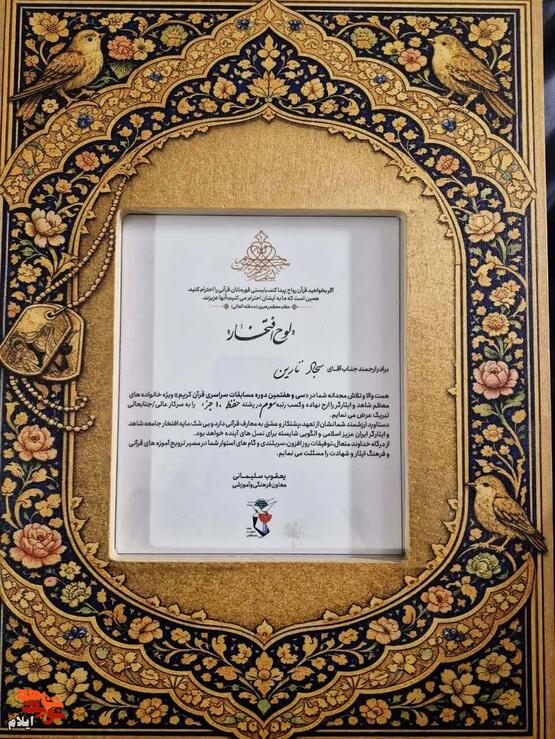 اگر بخواهید قرآن رواج پیدا کند، بایستی قهرمانان قرآنی را احترام کنید،
همین است که ما به ایشان احترام می کنیم، آنها عزیزند.
مقام معظم رهبری (مدظله العالی)
«لوح افتخار»
برادر ارجمند جناب آقای سجاد نارین
همت والا و تلاش مجدانه شما در «سی و هفتمین دوره مسابقات سراسری قرآن کریم» ویژه خانواده های
معظم شاهد و ایثارگر را ارج نهاده و کسب رتبه سوم در رشته حفظ ۱۰ جزء را به سرکار عالی/جنابعالی
تبریک عرض می نمایم.
دستاورد ارزشمند شما نشان از تعهد، پشتکار و عشق به معارف قرآنی دارد و بی شک مایه افتخار جامعه شاهد
و ایثارگر ایران عزیز اسلامی و الگویی شایسته برای نسل های آینده خواهد بود.
از درگاه خداوند متعال، توفیقات روز افزون، سربلندی و گام های استوار شما در مسیر ترویج آموزه های قرآنی
و فرهنگ ایثار و شهادت را مسئلت می نمایم.
یعقوب سلیمانی
معاون فرهنگی و آموزشی
ایلام